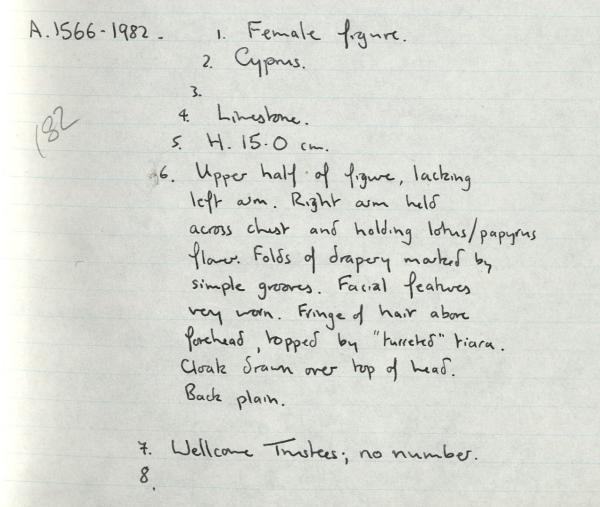 A.1566-1982. 1. Female figure.
2. Cyprus.
3.
182
4. Limestone.
5. H. 15.0 cm.
6. Upper half of figure, lacking
left arm. Right arm held
across chest and holding lotus/papyrus
flower. Folds of drapery marked by
simple grooves. Facial features
very worn. Fringe of hair above
forehead, topped by "turreted" tiara.
Cloak drawn over top of head.
Back plain.
7. Wellcome Trustees; no number.
8.